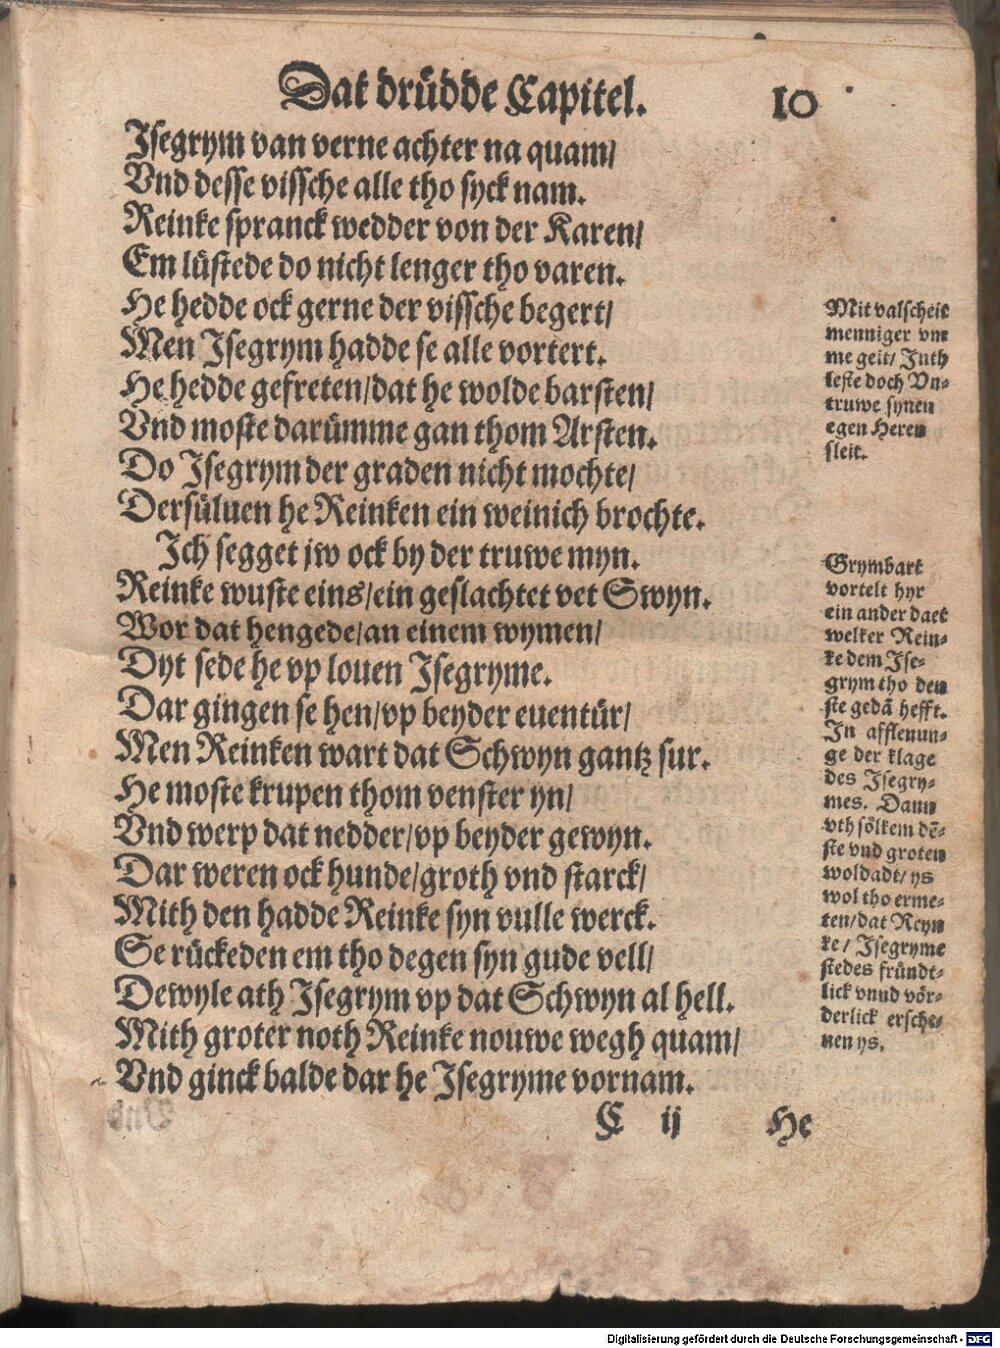 Dat drüdde Capitel. 10
Isegrym van verne achter na quam/
Vnd desse vissche alle tho syck nam.
Reinke spranck wedder von der Karen/
Em lüstede do nicht lenger tho varen.
He hedde ock gerne der vissche begert/
Men Isegrym hadde se alle vortert.
He hedde gefreten/dat he wolde barsten/
Vnd moste darümme gan thom Arsten.
Do Isegrym der graden nicht mochte/
Dersüluen he Reinken ein weinich brochte.
Ich segget jw ock by der truwe myn.
Reinke wuste eins/ein geslachtet vet Swyn.
Wor dat hengede/an einem wymen/
Dyt sede he vp louen Isegryme.
Dar gingen se hen/vp beyder euentür/
Men Reinken wart dat Schwyn gantz sur.
He moste krupen thom venster yn/
Vnd werp dat nedder/vp beyder gewyn.
Dar weren ock hunde/groth vnd starck/
Mith den hadde Reinke syn vulle werck.
Se rückeden em tho degen syn gude vell/
Dewyle ath Isegrym vp dat Schwyn al hell.
Mith groter noth Reinke nouwe wegh quam/
Vnd ginck balde dar he Isegryme vornam.
C ij He
Mit valscheit
menniger vm
me geit/ Inth
leste doch Vn-
truwe synen
egen Heren
sleit.
Grymbart
vortelt hyr
ein ander daet
welker Rein-
ke dem Ise-
grym tho den
ste gedā hefft.
In afflenun-
ge der klage
des Isegry-
mes. Dann
vth sölkem dē-
ste vnd groten
woldadt/ ys
wol tho erme-
ten/dat Reyn
ke/ Isegryme
stedes fründt-
lick vnnd vör-
derlickersche-
nen ys.
Digitalisierung gefördert durch die Deutsche Forschungsgemeinschaft - DFG